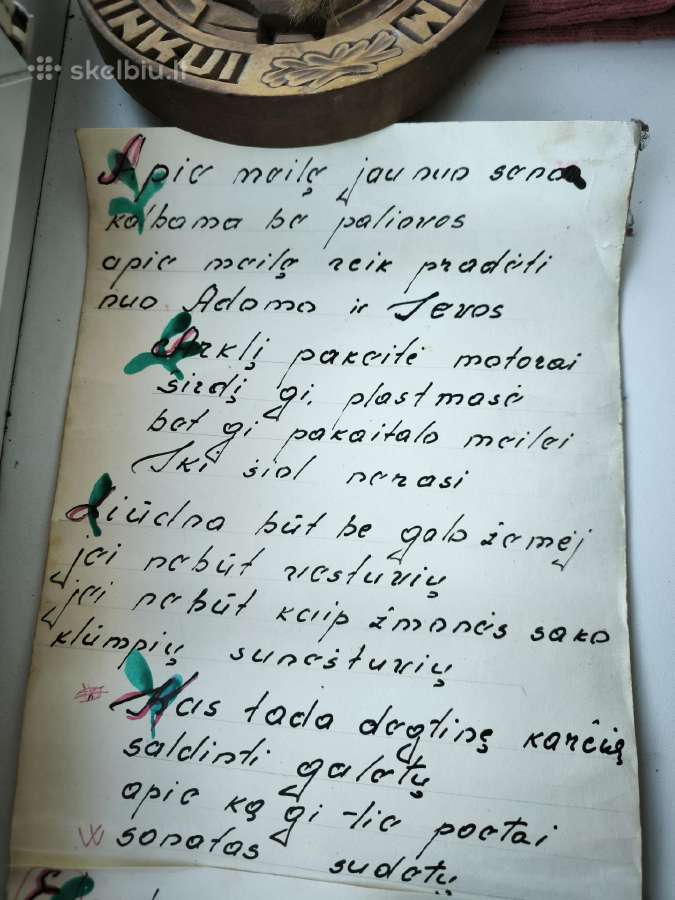 skelbiu.lt
INKUI
Apie meilę jau nuo seno
kalbama be paliovos
apie meilę reik pradėti
nuo Adomo ir Ievos
Arklį pakeitė motorai
širdį gi, plastmasė
bet gi pakaitalo meilei
Iki šiol nerasi
Liūdna būt be galo žemėj
jei nebūt vestuvių
jei nebūt kaip žmonės sako
klūmpių suneštuvių
Kas tada degtinę karčią
saldinti galetų
apie ką gi -tie poetai
sonatas sudetų